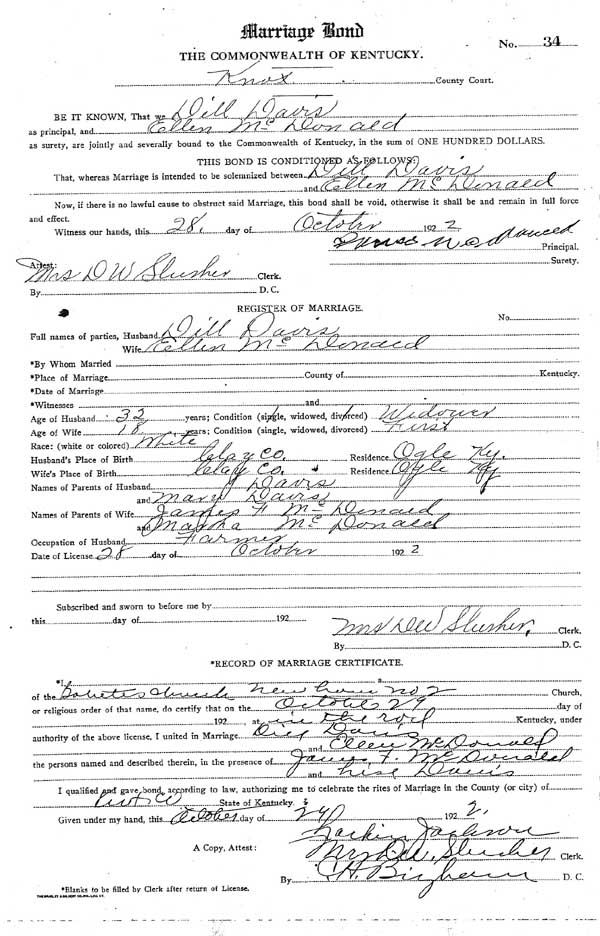 Marriage Bond
No. 34
THE COMMONWEALTH OF KENTUCKY.
Knox County Court.
BE IT KNOWN, That we Dill Davis
as principal, and Ellen Mc Donald
as surety, are jointly and severally bound to the Commonwealth of Kentucky, in the sum of ONE HUNDRED DOLLARS.
THIS BOND IS CONDITIONED AS FOLLOWS:
That, whereas Marriage is intended to be solemnized between Dill Davis
and Ellen Mc Donald
Now, if there is no lawful cause to obstruct said Marriage, this bond shall be void, otherwise it shall be and remain in full force
and effect.
Witness our hands, this 28. day of October 1922
Principal.
Surety.
Attest:
Mrs D W Slusher Clerk.
By D. C.
REGISTER OF MARRIAGE.
No.
Full names of parties, Husband Dill Davis
Wife Ellen Mc Donald
*By Whom Married
*Place of Marriage County of Kentucky.
*Date of Marriage
*Witnesses and
Age of Husband 32 years; Condition (single, widowed, divorced) Widower
Age of Wife 18 years; Condition (single, widowed, divorced) First
Race: (white or colored) White
Husband's Place of Birth Clay Co. Residence Ogle Ky.
Wife's Place of Birth Clay Co. Residence Ogle Ky
Names of Parents of Husband Davis
and Mary Davis
Names of Parents of Wife James F Mc Donald
and Martha Mc Donald
Occupation of Husband Farmer
Date of License 28 day of October 1922
Subscribed and sworn to before me by
this day of 192
Mrs D W Slusher, Clerk.
By D.C.
*RECORD OF MARRIAGE CERTIFICATE.
*I, a
of the Church New No 2 Church,
or religious order of that name, do certify that on the October 29 day of
192 , at in the Kentucky, under
authority of the above license, I united in Marriage Dill Davis
and Ellen McDonald
the persons named and described therein, in the presence of James F. McDonald
and Davis
I qualified and gave bond, according to law, authorizing me to celebrate the rites of Marriage in the County (or city) of
State of Kentucky.
Given under my hand, this October day of 29 1922.
Larkin Jackson
A Copy, Attest: Mrs D.W. Slusher Clerk.
By H Bingham D. C.
*Blanks to be filled by Clerk after return of License.